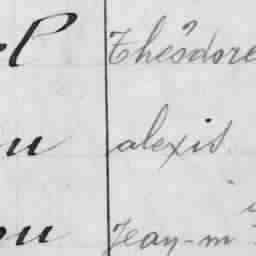 Théodore
alexis
Jean-m